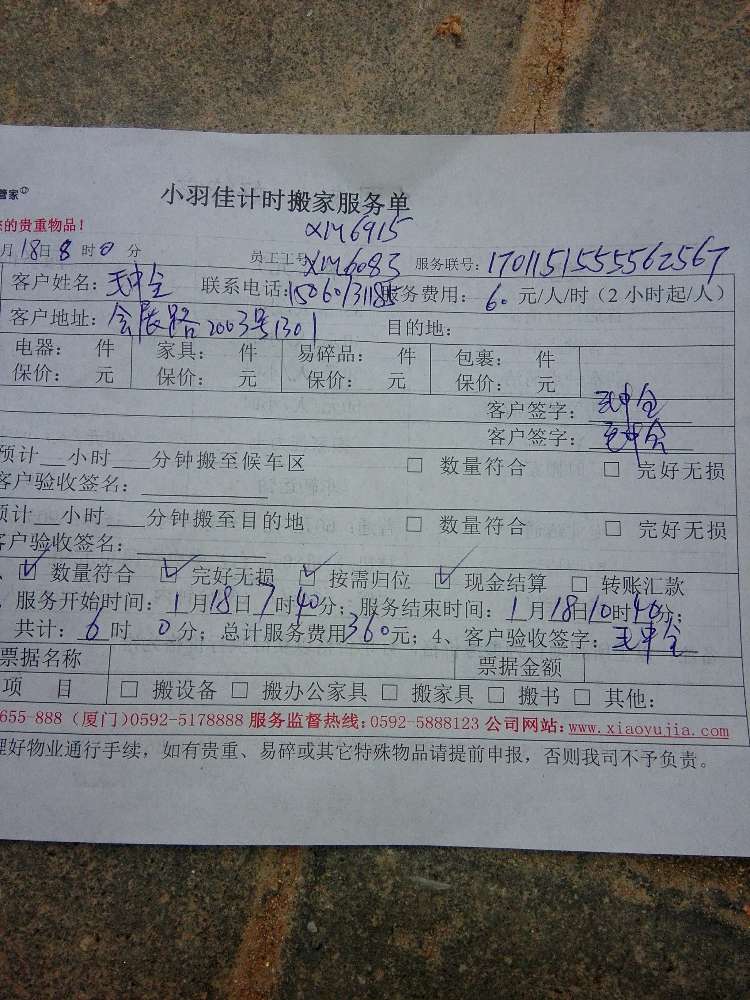 管家
小羽佳计时搬家服务单
的贵重物品！
XM6915
月18日8时0分 员工工号 XM6083 服务联号：1701151555562567
客户姓名：王中全 联系电话： 服务费用：60元/人/时（2小时起/人）
客户地址：会展路2003号1301 目的地：
电器： 件 家具： 件 易碎品： 件 包裹： 件
保价： 元 保价： 元 保价： 元 保价： 元
客户签字：王中全
客户签字：王中全
预计__小时___分钟搬至候车区 □ 数量符合 □ 完好无损
客户验收签名：
预计__小时___分钟搬至目的地 □ 数量符合 □ 完好无损
客户验收签名：
☑ 数量符合 ☑ 完好无损 ☑ 按需归位 ☑ 现金结算 □ 转账汇款
服务开始时间：1月18日7时40分；服务结束时间：1月18日10时40分；
共计：6时0分；总计服务费用360元；4、客户验收签字：王中全
票据名称 票据金额
项 目 □ 搬设备 □ 搬办公家具 □ 搬家具 □ 搬书 □ 其他：
655-888（厦门）0592-5178888 服务监督热线：0592-5888123 公司网站：www.xiaoyujia.com
理好物业通行手续，如有贵重、易碎或其它特殊物品请提前申报，否则我司不予负责。